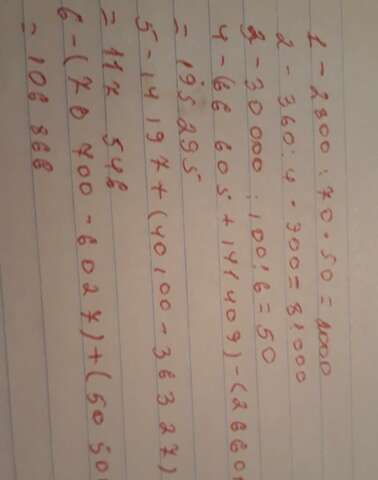 1 - 2800 : 70 · 50 = 2000
2 - 360 : 4 · 900 = 81000
3 - 30 000 : 100 : 6 = 50
4 - (66 605 + 141 409) - (26601
= 195 295
5 - 14 197 + (40 100 - 36 327)
= 117 548
6 - (70 700 - 6027) + (50 50
= 108 866